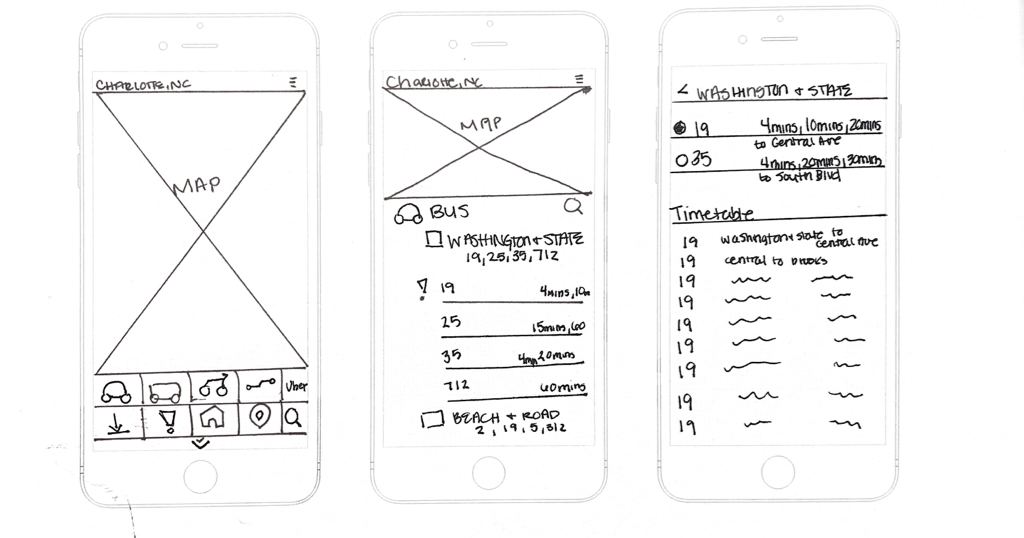 CHARLOTTE, NC
MAP
Uber
Charlotte, NC
MAP
BUS
WASHINGTON & STATE
19, 25, 35, 712
! 19 4mins, 10m
25 15mins, 60
35 4mn, 20mins
712 60mins
BEACH & ROAD
2, 19, 5, 312
< WASHINGTON & STATE
19 4mins, 10mins, 20mins
to Central Ave
35 4mins, 20mins, 30mins
to South Blvd
Timetable
19 Washington & state to
central Ave
19 central to brooks
19
19
19
19
19
19
19